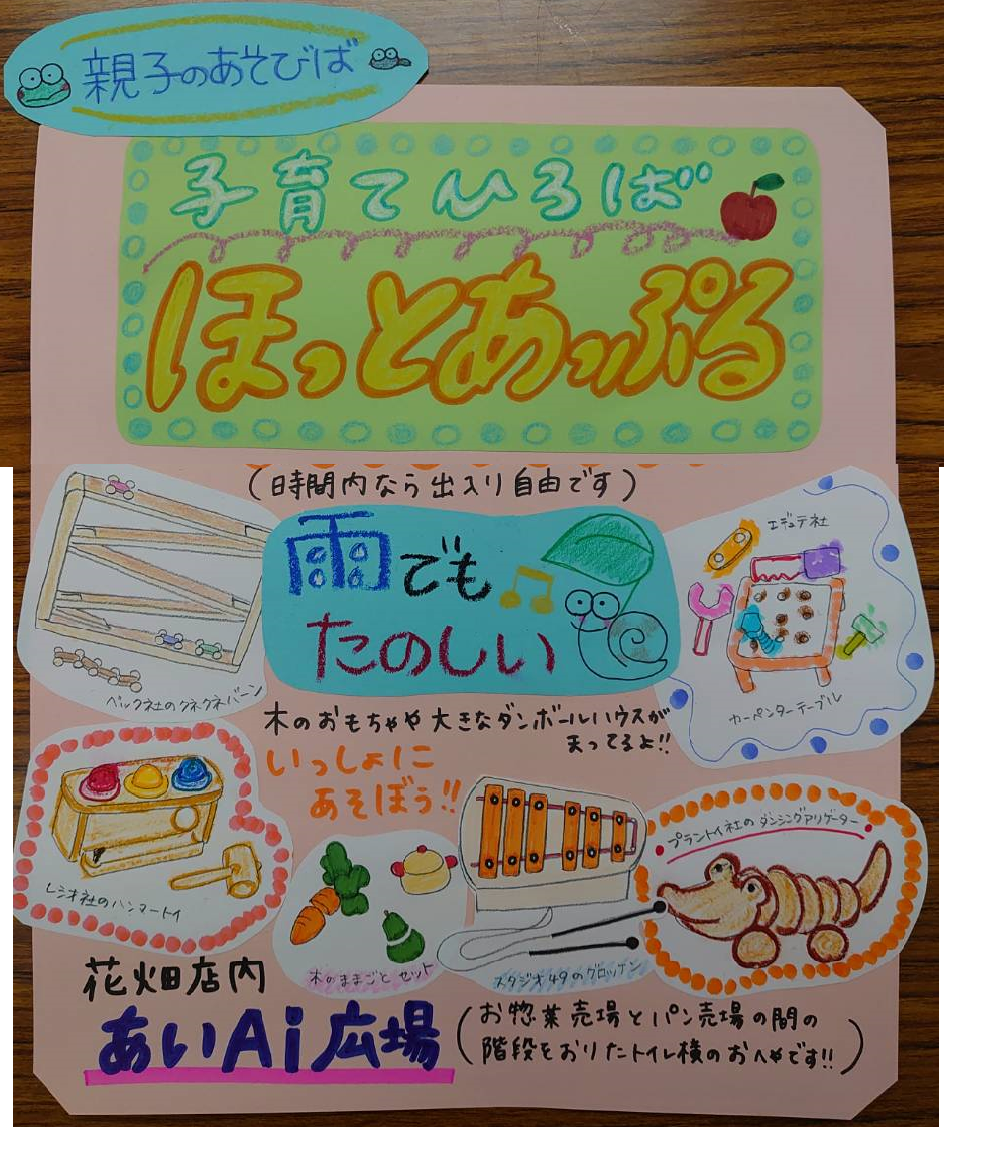 親子のあそびば
子育てひろば
ほっとあっぷる
(日時間内なら出入り自由です)
雨でも
たのしい
エデュテ社
カーペンターテーブル
ベック社のクネクネバーン
木のおもちゃや大きなダンボールハウスが
まってるよ!!
いっしょに
あそぼう!!
プラントイ社のダンシングアリゲーター
レシオ社のハンマートイ
木のままごとセット
スタジオ49のグロッケン
花畑店内
あいAi広場
(お惣菜売場とパン売場の間の
階段をおりたトイレ横のおへやです!!)